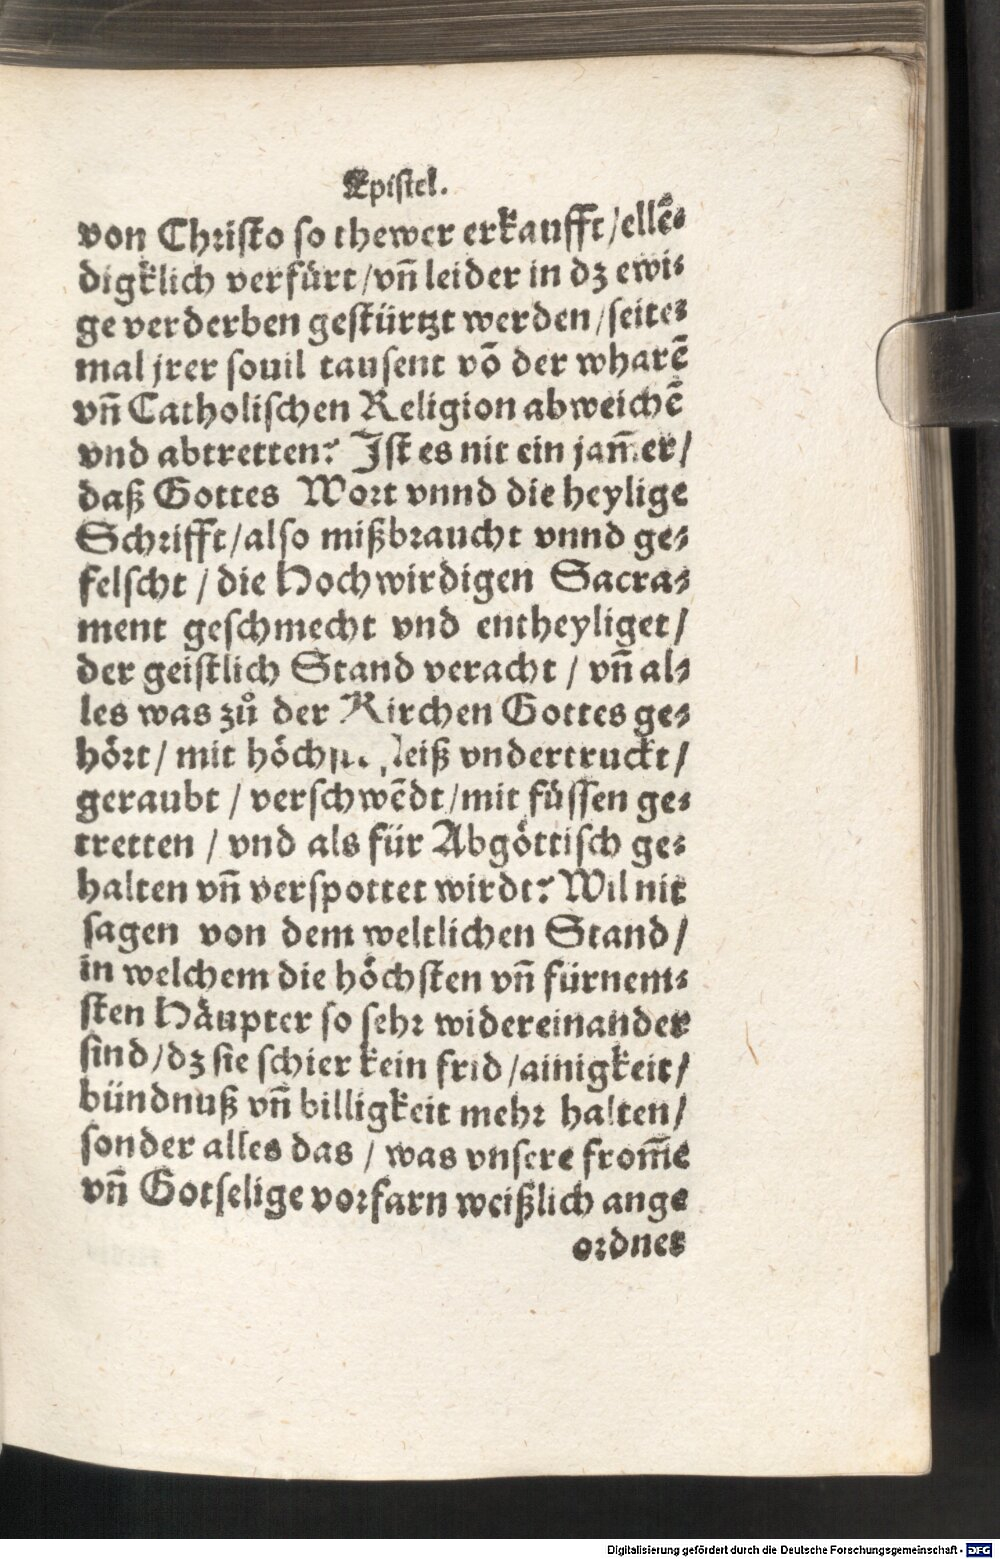 Epistel.
von Christo so thewer erkaufft/ellē⸗
digklich verfürt/vñ leider in dz ewi⸗
ge verderben gestürtzt werden/seite⸗
mal jrer souil tausent vō der wharē
vñ Catholischen Religion abweichē
vnd abtretten? Ist es nit ein jam̄er/
daß Gottes Wort vnnd die heylige
Schrifft/also mißbraucht vnnd ge⸗
felscht / die Hochwirdigen Sacra⸗
ment geschmecht vnd entheyliget/
der geistlich Stand veracht / vñ al⸗
les was zů der Kirchen Gottes ge⸗
hört/ mit vndertruckt/
geraubt / verschwēdt/mit füssen ge⸗
tretten / vnd als für Abgöttisch ge⸗
halten vñ verspottet wirdt? Wil nit
sagen von dem weltlichen Stand/
in welchem die höchsten vñ fürnem⸗
sten Häupter so sehr widereinander
sind/dz sie schier kein frid/ainigkeit/
bündnuß vñ billigkeit mehr halten/
sonder alles das / was vnsere from̄e
vñ Gotselige vorfarn weißlich ange
ordnet
Digitalisierung gefördert durch die Deutsche Forschungsgemeinschaft - DFG